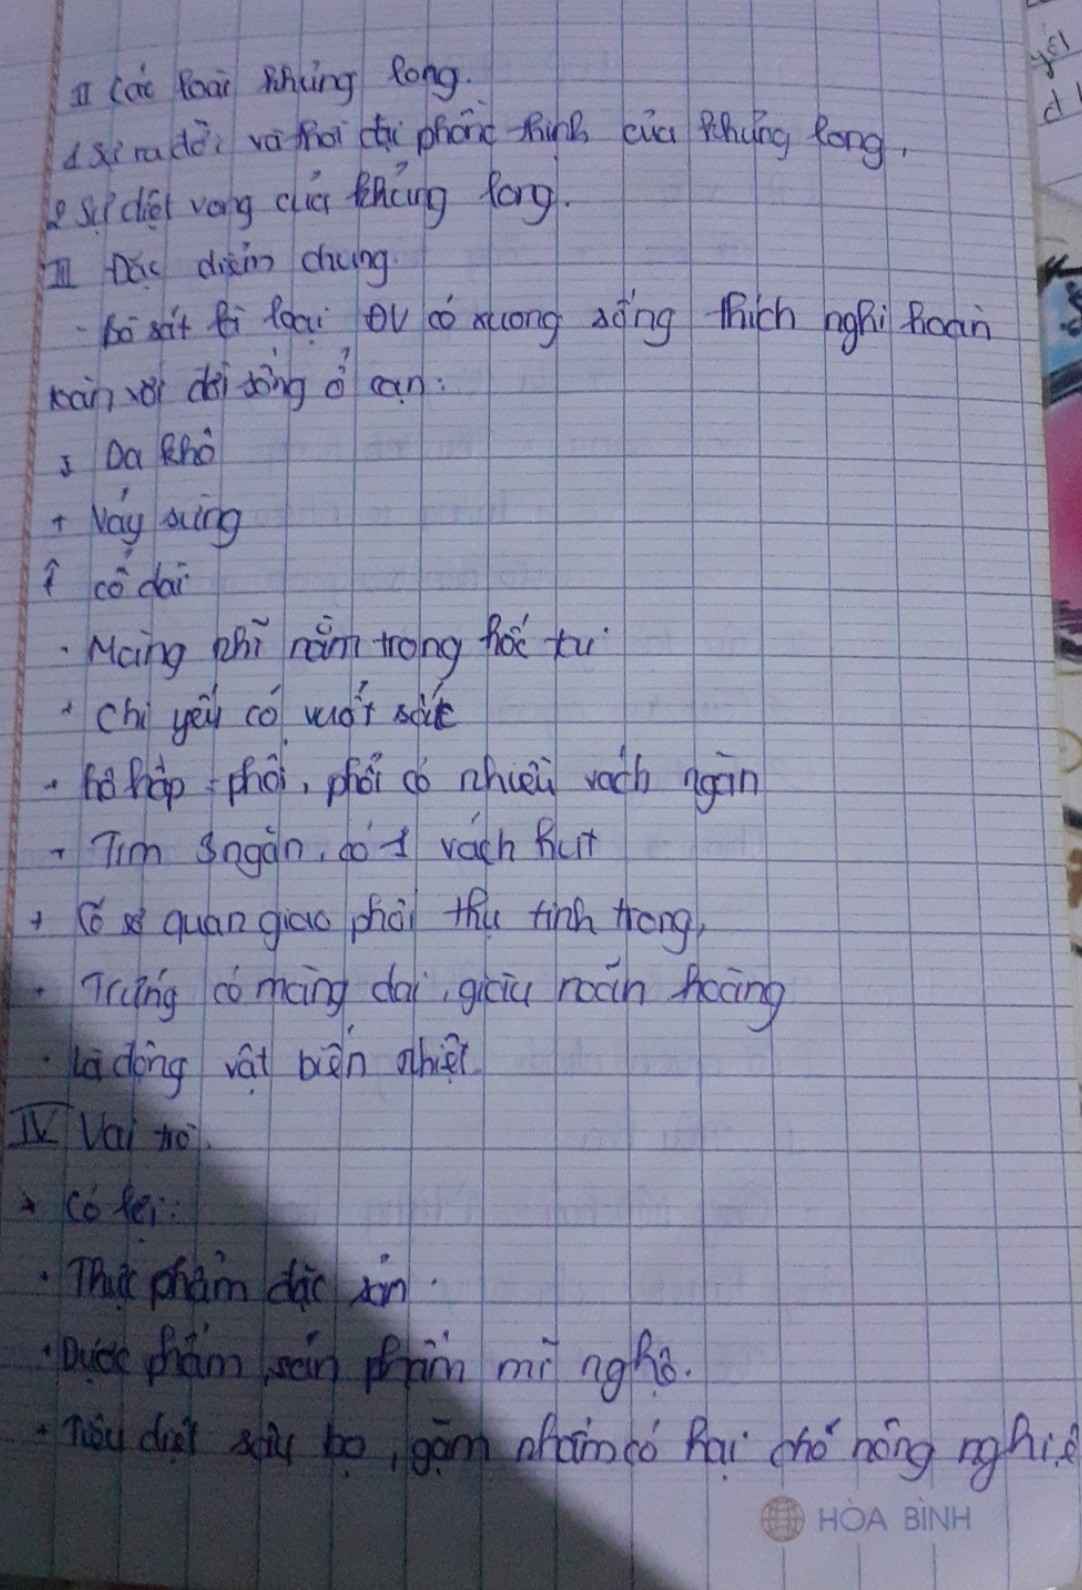 II Các loài khủng long.
1 Sự ra đời và thời đại phồn thịnh của khủng long.
2 Sự diệt vong của khủng long.
III Đặc điểm chung.
- Bò sát là loại ĐV có xương sống thích nghi hoàn
toàn với đời sống ở cạn:
+ Da khô
+ Vảy sừng
+ cổ dài
. Màng nhĩ nằm trong hốc tai
+ Chi yếu có vuốt sắc
+ hô hấp = phổi, phổi có nhiều vách ngăn
+ Tim 3 ngăn, có 1 vách hụt
+ Có cơ quan giao phối thụ tinh trong,
. Trứng có màng dai, giàu noãn hoàng
. Là động vật biến nhiệt.
IV Vai trò.
+ Có lợi:
. Thực phẩm đặc sản.
. Dược phẩm, sản phẩm mĩ nghệ.
+ Tiêu diệt sâu bọ, gặm nhấm có hại cho nông nghiệ
HÒA BÌNH